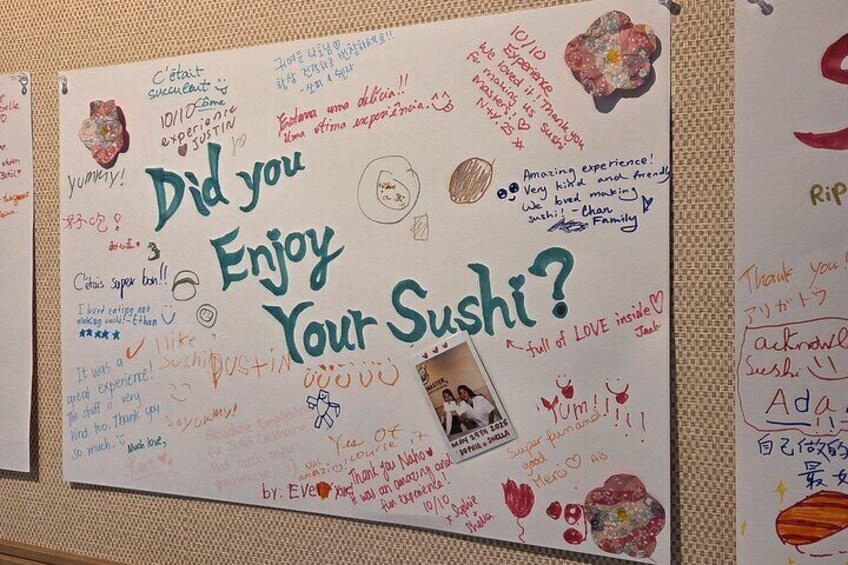 C'était
succulent
Côme
10/10
experience
JUSTIN
귀여운 나호님
항상 건강하고 번창하세요!!
Estava uma delícia!!
Uma ótima experiência.
10/10
Experience
We loved it! Thank you
for making us sushi
masters!
N+Y '25 xx
yummy!
Did you
Enjoy
Your Sushi?
Amazing experience!
Very kind and friendly
We loved making
sushi! - Chan
Family
好吃!
C'étais super bon!!
I loved eating and
making sushi! - Ethan
I like
Sushi
DUSTIN
full of LOVE inside
Jack
It was a
great experience!
The staff is very
kind too. Thank you
so much.
Much love,
So yummy!
Yum!!!!!
Super fun and
good
Merci
MASTER
MAY 29TH 2025
SOPHIE & SHELLA
Yes Of
course
amazing!
by: Ever
Thank you Naho
It was an amazing and
fun experience!
10/10
x Sophie
&
Shella
Thank you!
アリガトウ
Sushi
Ada
自己做的
最